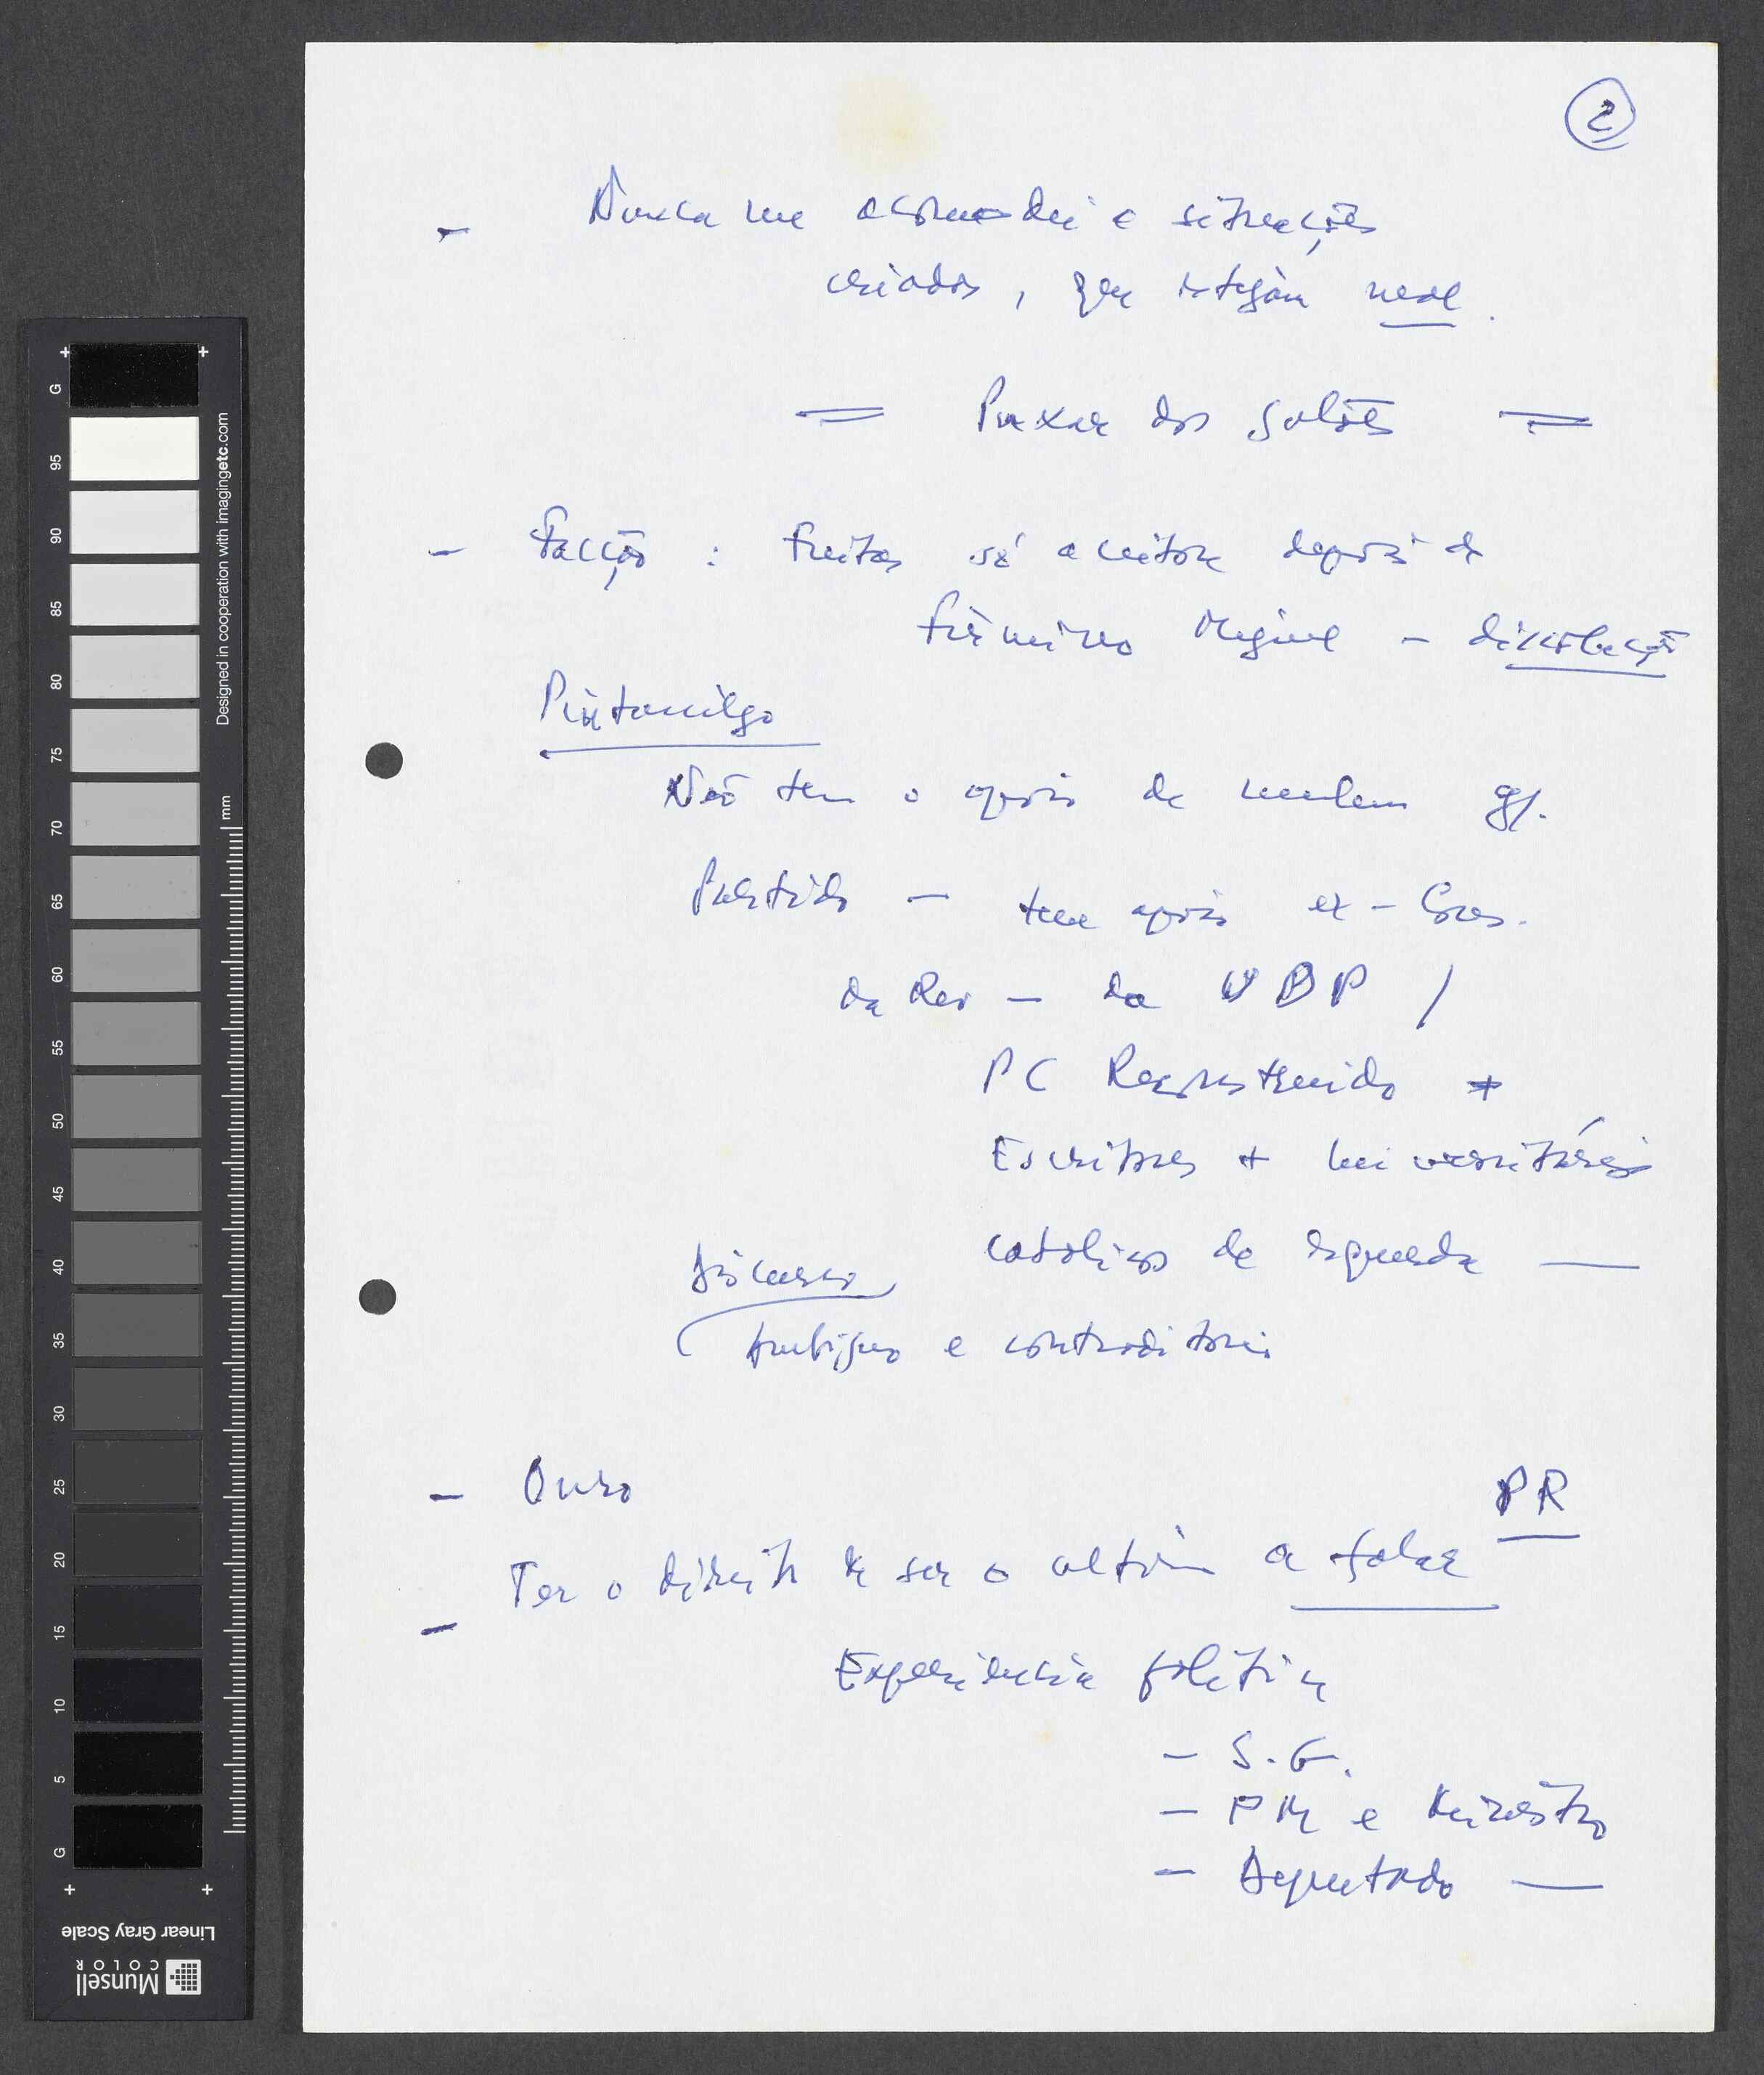 2
- Nunca me acomodei a situações
criadas, que estejam mal.
= Puxar dos galões =
- Facção : Freitas só aceitou depois de
Firmino Miguel -
Pintasilgo
Não tem o apoio de nenhum gr.
Partido - tem apoio ex - Cons.
da Rev - da UDP /
PC Reconstruido +
Escritores + universitários
católicos de esquerda —
Discurso
Ambiguo e contraditorio
- Ouro
PR
- Ter o direito de ser o ultimo a falar
Experiência politica
- S.G.
- PM e Ministro
- Deputado —
G
95
90
85
80
75
70
65
60
55
50
45
40
35
30
25
20
15
10
5
G
Designed in cooperation with imagingetc.com
mm
Linear Gray Scale
Munsell
COLOR